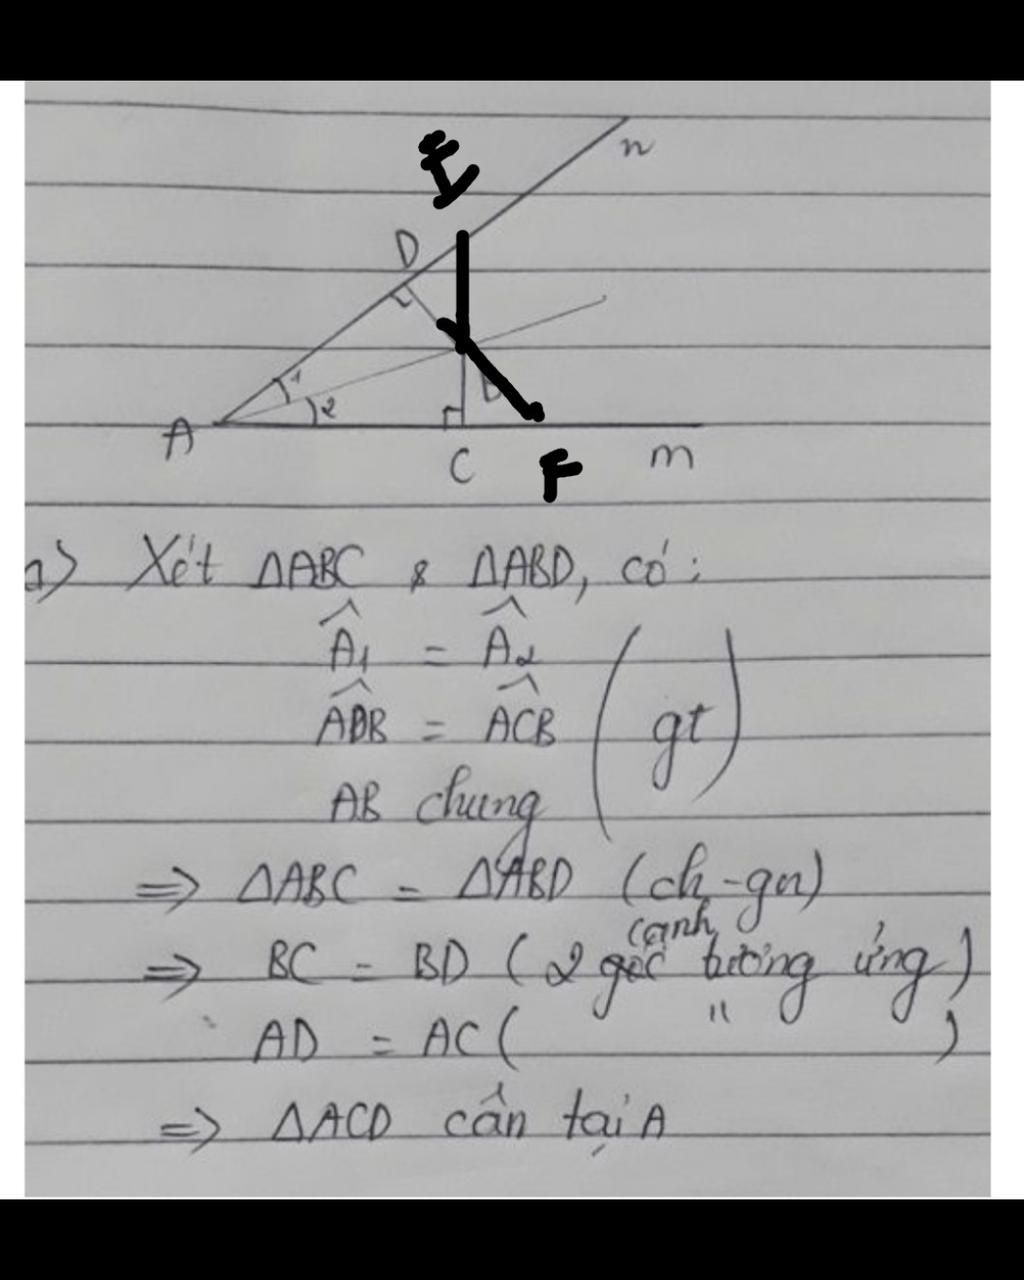 n
E
D
1
2
B
A
C
F
m
a) Xét ΔABC & ΔABD, có:
Â₁ = Â₂
ADB = ACB (gt)
AB chung
=> ΔABC = ΔABD (ch-gn)
cạnh
=> BC = BD (2 góc tương ứng)
AD = AC ( " )
=> ΔACD cân tại A